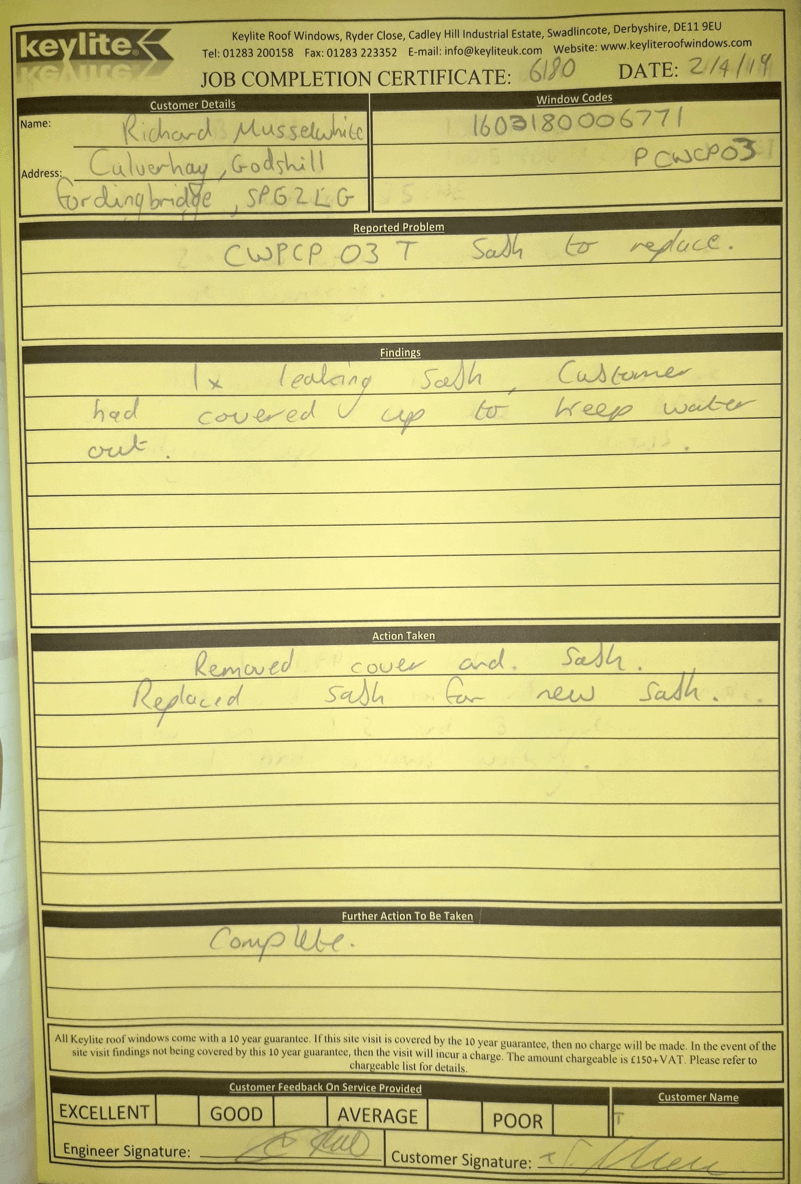 keylite
Keylite Roof Windows, Ryder Close, Cadley Hill Industrial Estate, Swadlincote, Derbyshire, DE11 9EU
Tel: 01283 200158 Fax: 01283 223352 E-mail: info@keyliteuk.com Website: www.keyliteroofwindows.com
JOB COMPLETION CERTIFICATE: 6180 DATE: 2/4/19
Customer Details
Window Codes
Name: Richard Musselwhite
1603180006771
Address: Culverhay, Godshill
PCWCP03
Fordingbridge, SP6 2LG
Reported Problem
CWPCP 03 T Sash to replace.
Findings
1x leaking sash, Customer
had covered up to keep water
out.
Action Taken
Removed cover and. Sash.
Replaced sash for new sash.
Further Action To Be Taken
Complete.
All Keylite roof windows come with a 10 year guarantee. If this site visit is covered by the 10 year guarantee, then no charge will be made. In the event of the
site visit findings not being covered by this 10 year guarantee, then the visit will incur a charge. The amount chargeable is £150+VAT. Please refer to
chargeable list for details.
Customer Feedback On Service Provided
Customer Name
EXCELLENT GOOD AVERAGE POOR
Engineer Signature:
Customer Signature: